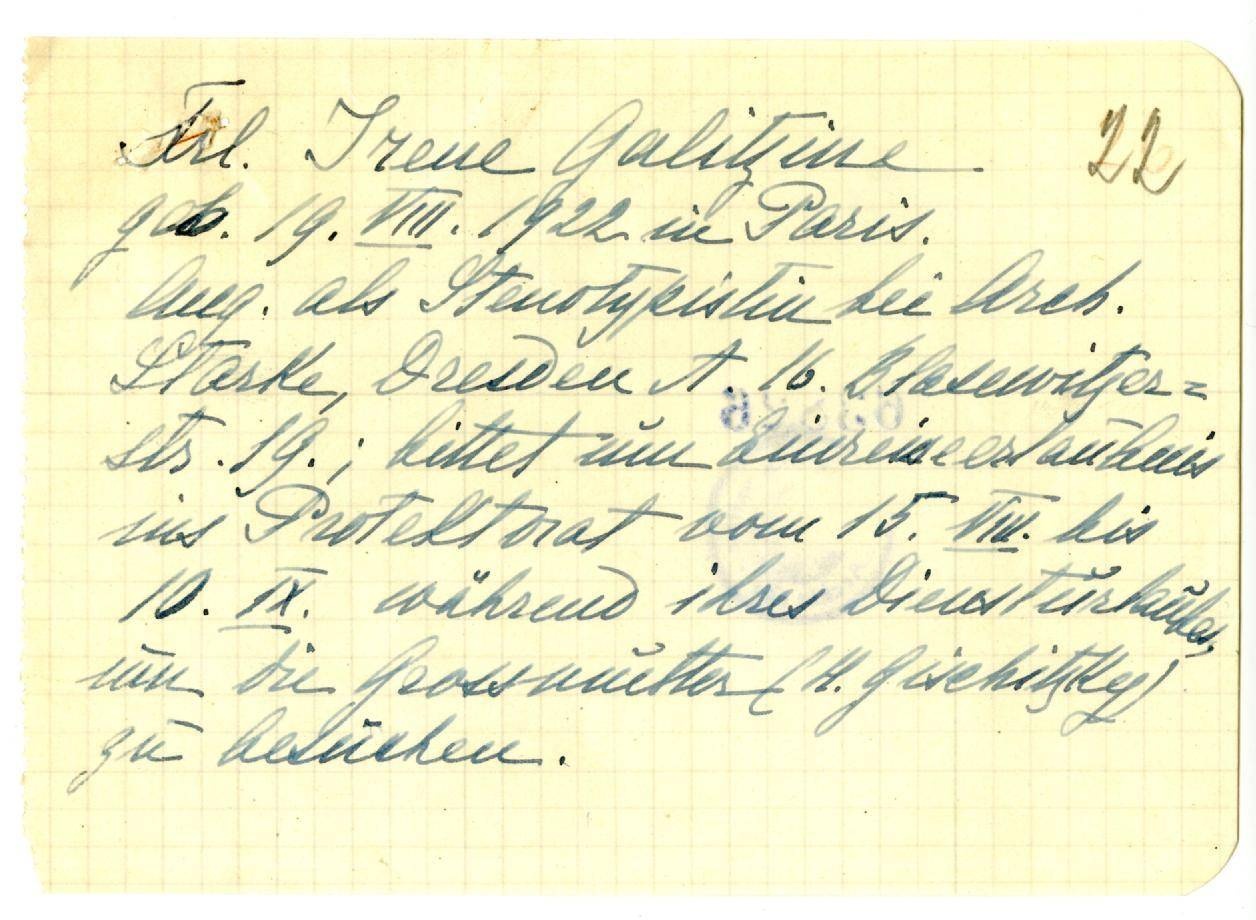 22
Frl. Irene Galitzine
geb. 19. VIII. 1922 in Paris.
Ang. als Stenotypistin bei Arch.
Starke, Dresden A. 16. Blasewitzer=
str. 19.; bittet um Einreiseerlaubnis
ins Protektorat vom 15. VIII. bis
10. IX. während ihres Diensturlaubes,
um die Grossmutter (H. Gischitzky)
zu besuchen.